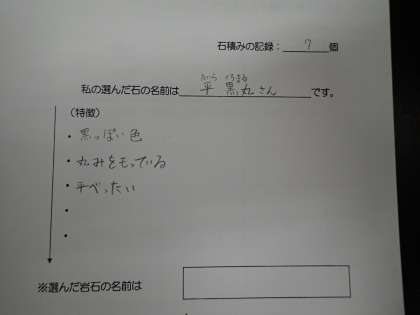 石積みの記録：7個
たいら くろまる
私の選んだ石の名前は 平 黒丸さん です。
（特徴）
・黒っぽい色
・丸みをもっている
・平べったい
・
・
※選んだ岩石の名前は